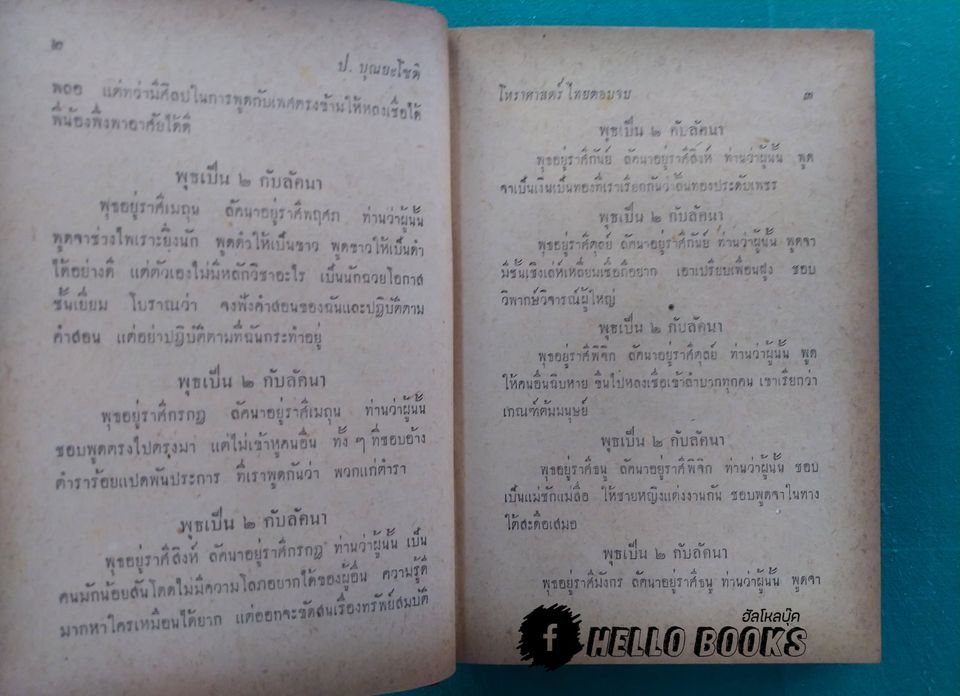 ๒
ป. บุณยะโชติ
พอ แต่ทว่ามีศิลปในการพูดกับเพศตรงข้ามให้หลงเชื่อได้
พี่น้องพึ่งพาอาศัยได้ดี
พุธเป็น ๒ กับลัคนา
พุธอยู่ราศีเมถุน ลัคนาอยู่ราศีพฤศภ ท่านว่าผู้นั้น
พูดจาช่วงไพเราะยิ่งนัก พูดดำให้เป็นขาว พูดขาวให้เป็นดำ
ได้อย่างดี แต่ตัวเองไม่มีหลักวิชาอะไร เป็นนักฉวยโอกาส
ชั้นเยี่ยม โบราณว่า จงฟังคำสอนของฉันและปฏิบัติตาม
คำสอน แต่อย่าปฏิบัติตามที่ฉันกระทำอยู่
พุธเป็น ๒ กับลัคนา
พุธอยู่ราศีกรกฎ ลัคนาอยู่ราศีเมถุน ท่านว่าผู้นั้น
ชอบพูดตรงไปตรงมา แต่ไม่เข้าหูคนอื่น ทั้ง ๆ ที่ชอบอ้าง
ตำราร้อยแปดพันประการ ที่เราพูดกันว่า พวกแก่ตำรา
พุธเป็น ๒ กับลัคนา
พุธอยู่ราศีสิงห์ ลัคนาอยู่ราศีกรกฎ ท่านว่าผู้นั้น เป็น
คนมักน้อยสันโดดไม่มีความโลภอยากได้ของผู้อื่น ความรู้ดี
มากหาใครเหมือนได้ยาก แต่ออกจะขัดสนเรื่องทรัพย์สมบัติ
โหราศาสตร์ไทยตอบจบ
๓
พุธเป็น ๒ กับลัคนา
พุธอยู่ราศีกันย์ ลัคนาอยู่ราศีสิงห์ ท่านว่าผู้นั้น พูด
จาเป็นเงินเป็นทองที่เราเรียกกันว่าลิ้นทองประดับเพชร
พุธเป็น ๒ กับลัคนา
พุธอยู่ราศีตุลย์ ลัคนาอยู่ราศีกันย์ ท่านว่าผู้นั้น พูดจา
มีชั้นเชิงเล่ห์เหลี่ยมเชื่อถือยาก เอาเปรียบเพื่อนฝูง ชอบ
วิพากษ์วิจารณ์ผู้ใหญ่
พุธเป็น ๒ กับลัคนา
พุธอยู่ราศีพิจิก ลัคนาอยู่ราศีตุลย์ ท่านว่าผู้นั้น พูด
ให้คนอื่นฉิบหาย ขืนไปหลงเชื่อเข้าลำบากทุกคน เขาเรียกว่า
เกณฑ์ต้มมนุษย์
พุธเป็น ๒ กับลัคนา
พุธอยู่ราศีธนู ลัคนาอยู่ราศีพิจิก ท่านว่าผู้นั้น ชอบ
เป็นแม่ชักแม่สื่อ ให้ชายหญิงแต่งงานกัน ชอบพูดจาในทาง
ใต้สะดือเสมอ
พุธเป็น ๒ กับลัคนา
พุธอยู่ราศีมังกร ลัคนาอยู่ราศีธนู ท่านว่าผู้นั้น พูดจา
ฮัลโหลบุ๊ค
f HELLO BOOKS